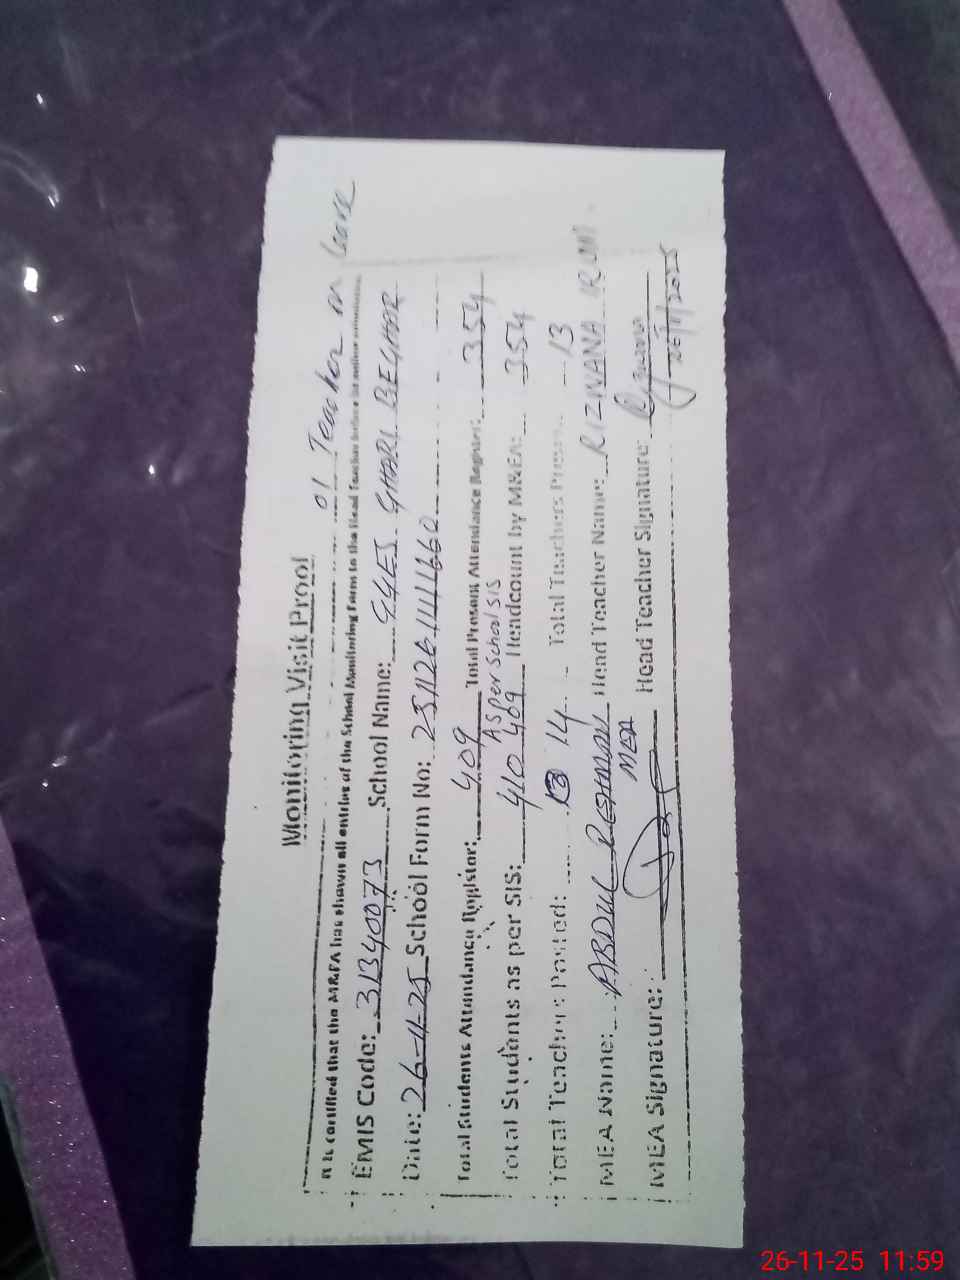 01 Teacher on leave
Monitoring Visit Proof
It is certified that the M&EA has shown all entries of the School Monitoring Form to the Head Teacher before its online submission.
EMIS Code: 31340073 School Name: GGES GHARI BEGHAR
Date: 26-11-25 School Form No: 251126111111660
Total Students Attendance Register: 409 Total Present Attendance Register: 354
As per School SIS
Total Students as per SIS: 410 409 Headcount by M&EA: 354
Total Teachers Posted: 13 14 Total Teachers Present: 13
MEA Name: ABDUL REHMAN Head Teacher Name: RIZWANA
MEA
MEA Signature: Head Teacher Signature: Rizwana
26/11/2025
26-11-25 11:59